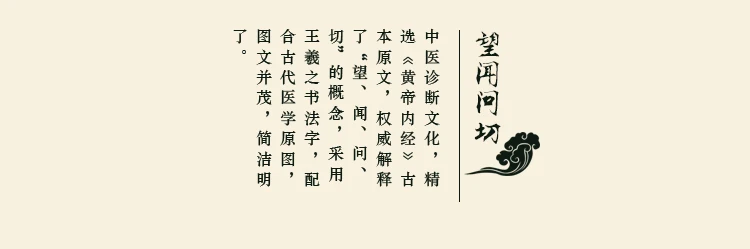 望闻问切
中医诊断文化，精
选《黄帝内经》古
本原文，权威解释
了“望、闻、问、
切”的概念，采用
王羲之书法字，配
合古代医学原图，
图文并茂，简洁明
了。